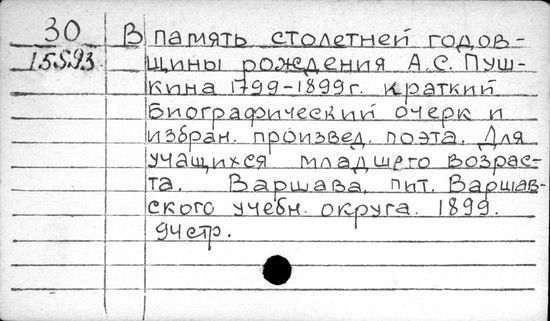 30 В память столетней годов-
15593 щины рождения А.С. Пуш-
кина 1799-1899г. Краткий
биографический очерк и
избран. произвед. поэта. Для
учащихся младшего возрас-
та. Варшава, пит. Варшав-
ского учебн. округа. 1899.
94стр.